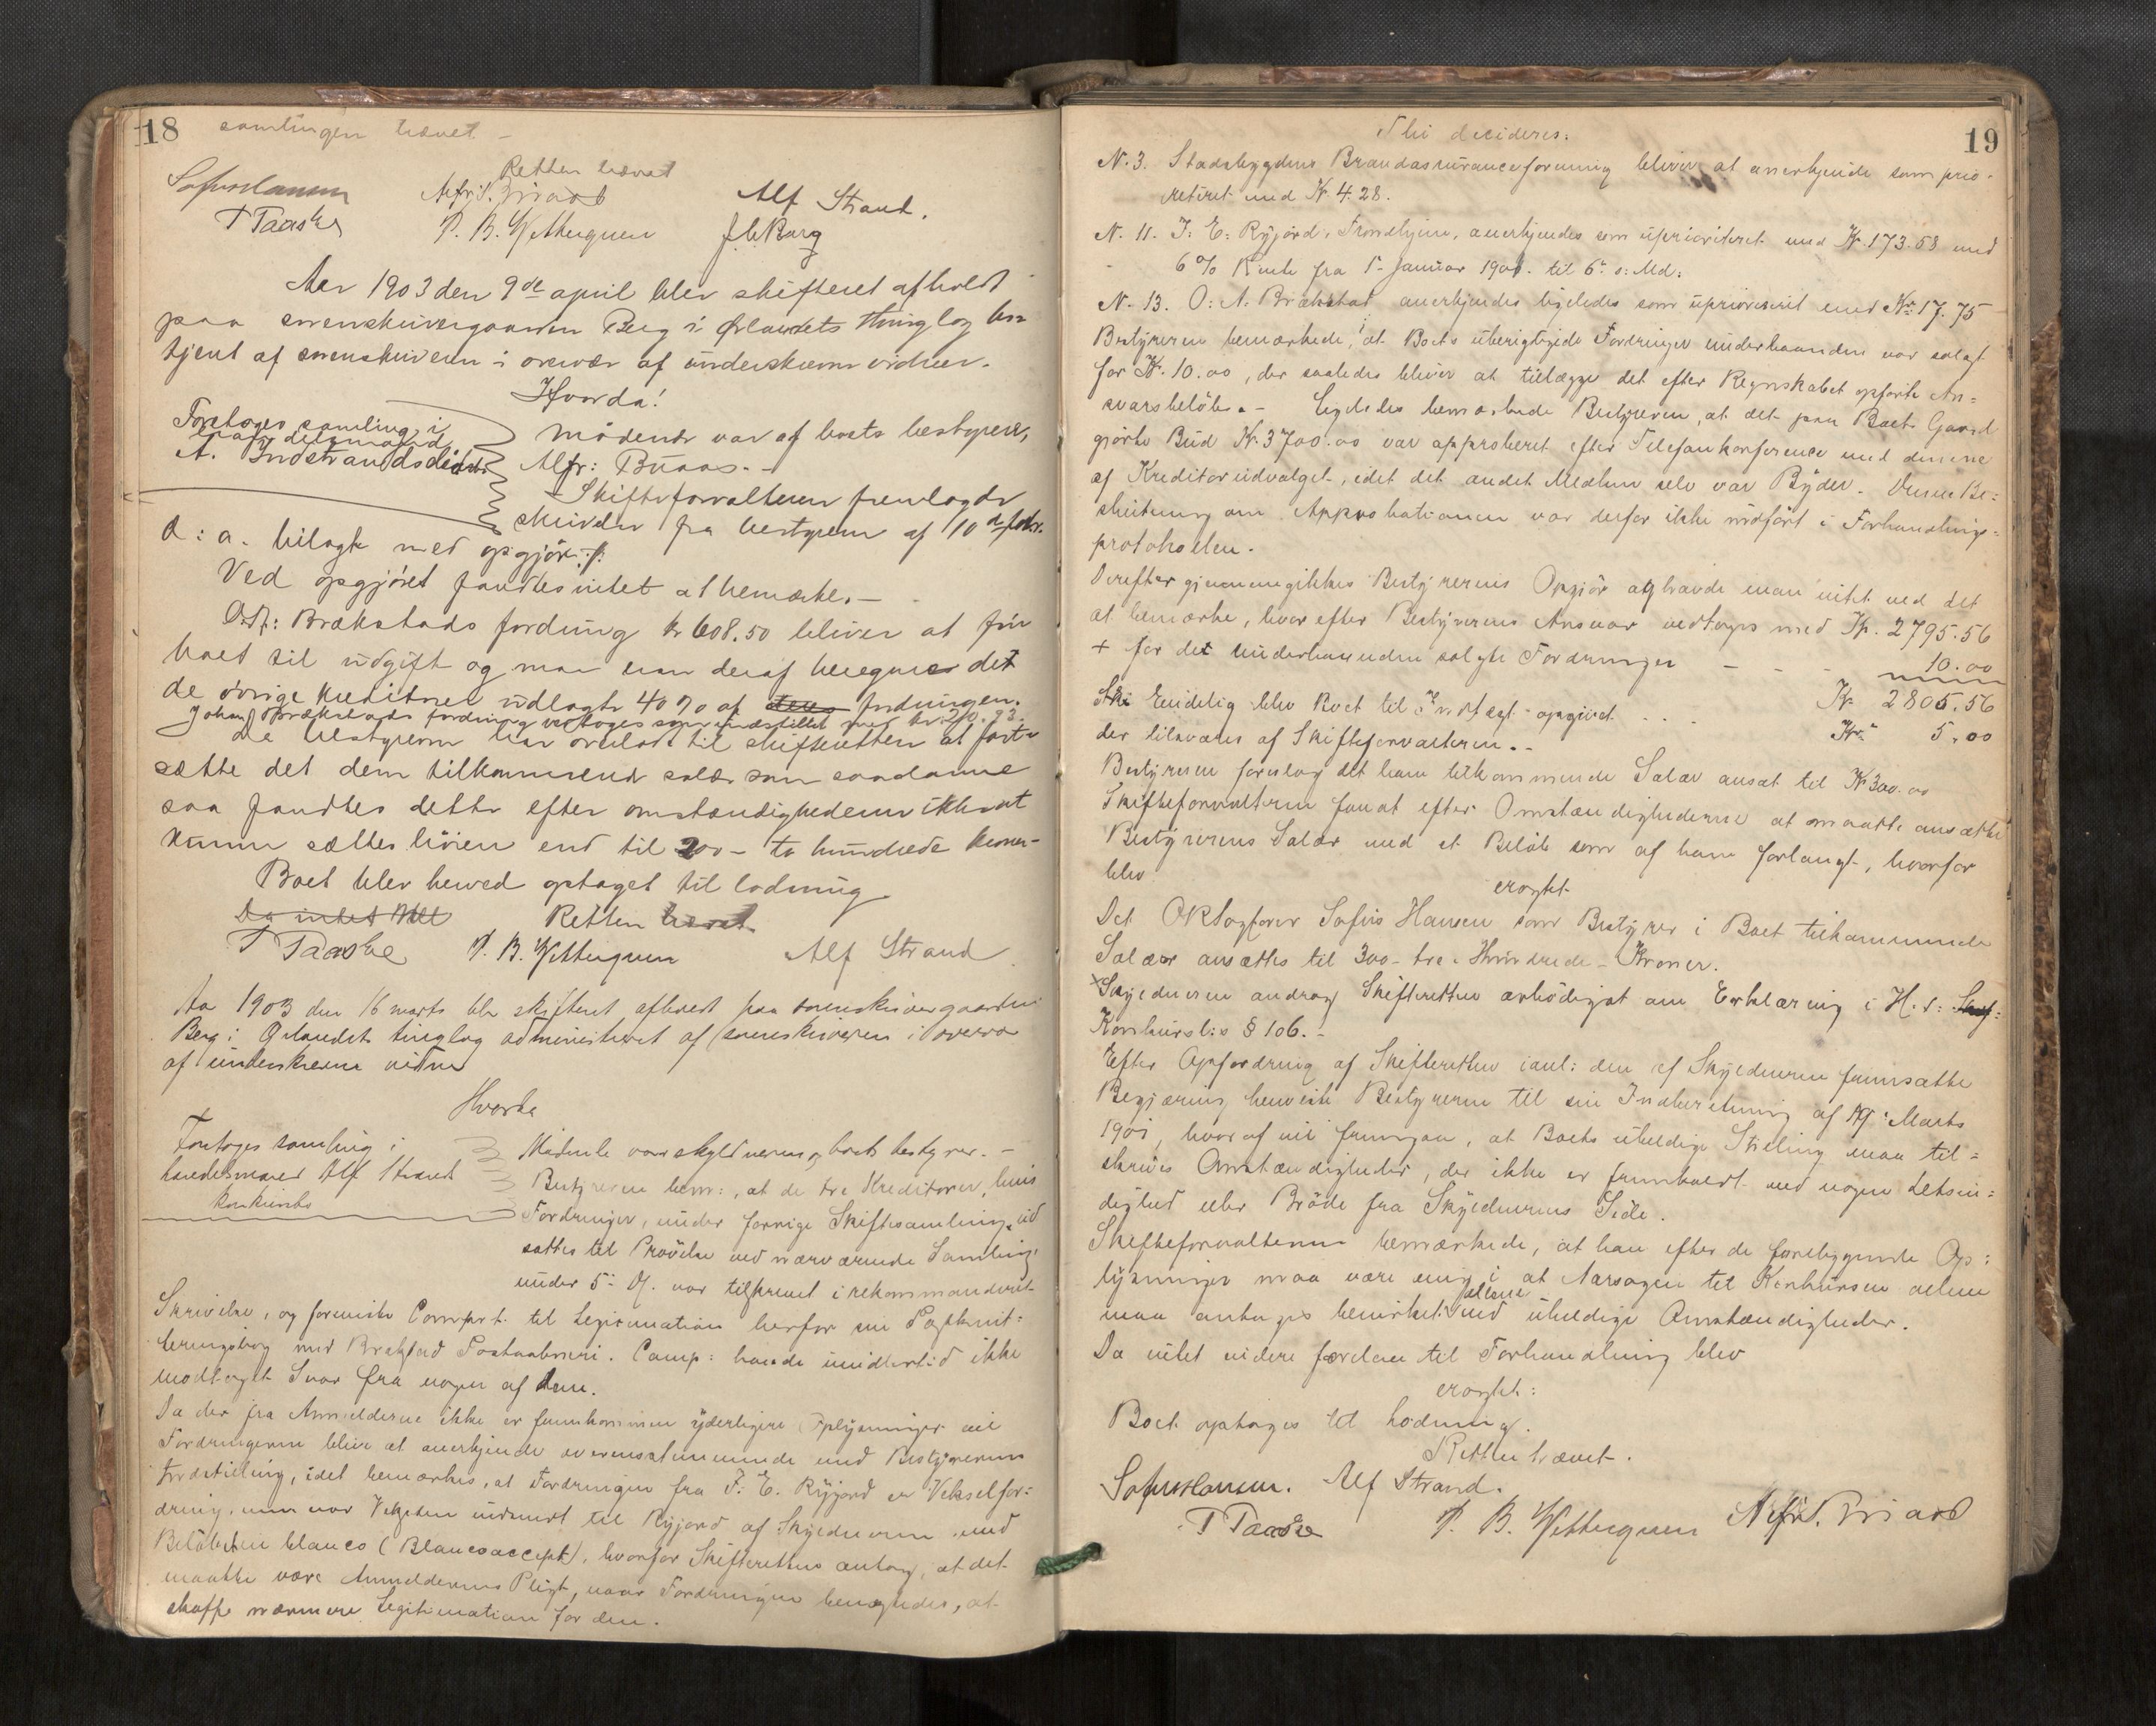 18
samlingen hævet —
Retten hævet
Sofus Hansen Alf Strand.
T Taaske P. B. Wettergreen J. C. Borg
Aar 1903 den 9de april blev skifteret afholdt
paa sorenskrivergaarden Berg i Ørlandets thinglag be-
tjent af sorenskriveren i overvær af underskrevne vidner.
Hvorda!
Foretoges samling i
A. Indstrands dødsbo
Mødende var af boets bestyrere,
Alfr: Buaas. —
Skifteforvalteren fremlagde
skrivelse fra bestyreren af 10de febr.
d: a. bilagt med opgjør. ./.
Ved opgjøret fandtes intet at bemærke. —
O.A: Brækstads fordring kr 608.50 bliver at
boet til udgift og man kan deraf beregnes det
de øvrige kreditorer udlagte 40 % af deres fordringen.
Johan Brækstads fordring vedtoges som
Da bestyreren har overladt til skifteretten at fast-
sætte det dem tilkommende salær som saadanne
saa fandtes dette efter omstændighederne ikke at
kunne sættes høiere end til 200 – to hundrede kroner –
Boet blev herved optaget til lodning
Da intet Mer Retten hævet
T Taaske P. B. Wettergreen Alf Strand
Aar 1903 den 16 marts blev skifteret afholdt paa sorenskrivergaarden
Berg i Ørlandets tinglag administreret af sorenskriveren i overvær
af underskrevne vidner
Hvorda
Foretoges samling i
handelsmand Alf Strands
konkursbo
Mødende var skyldneren og boets bestyrer. —
Bestyreren bem:, at de tre Kreditorer, hvis
Fordringer, under forrige Skiftesamling, ud
sattes til Prøvelse ved nærværende Samling
under 5: d. var tilskrevet i rekommanderet
Skrivelse, og foreviste Compt. til Legitimation herfor sin Postkvit:
teringsbog med Brækstad Postaabneri. Comp: havde imidlertid ikke
modtaget Svar fra nogen af dem.
Da der fra Anmelderne ikke er fremkommen yderligere Oplysninger vil
Fordringerne blive at anerkjende overensstemmende med Bestyrerens
Indstilling, idet bemærkes, at Fordringen fra J. E. Ryjord er Vekselfor:
dring, men var Vekselen indsendt til Ryjord af Skyldneren med
Beløbet in blanco (Blancoaccept), hvorfor Skifteretten antog, at det
maatte være Anmelderens Pligt, naar Fordringen benegtedes, at
skaffe nærmere Legitimation for den.
19
Thi decideres:
N. 3. Stadsbygdens Brandassuranceforening bliver at anerkjende som prio-
riteret med Kr. 4.28.
N. 11. J. E. Ryjord, Trondhjem, anerkjendes som uprioriteret med Kr. 173.58 med
6 % Rente fra 1. Januar 1901. til 6. s: Md:
N. 13. O: A. Brækstad anerkjendes ligeledes som uprioriteret med Kr. 17.75
Bestyreren bemærkede, at Boets uberigtigede Fordringer underhaanden var solgt
for Kr. 10.00, der saaledes bliver at tillægge det efter Regnskabet opførte An-
svarsbeløb. — Ligeledes bemærkede Bestyreren, at det paa Boets Gaard
gjorte Bud Kr. 3700.00 var approberet efter Telefonkonference med denene
af Kreditorudvalget, idet det andet Medlem selv var Byder. Denne Be:
slutning om Approbationen var derfor ikke indført i Forhandlings-
protokollen.
Derefter gjennemgikkes Bestyrerens Opgjør og havde man intet ved det
at bemærke, hvorefter Bestyrerens Ansvar vedtoges med Kr. 2795.56
+ for det underhaanden solgte Fordringer - - - 10.00
Kr 2805.56
Endelig blev Boet til Indtægt opgivet . . . Kr 5.00
der tilsvares af Skifteforvalteren. —
Bestyreren foreslog det ham tilkommende Salær ansat til Kr 300.00
Skifteforvalteren fandt efter Omstændighederne at maatte ansætte
Bestyrerens Salær med et Beløb som af ham forlangt, hvorfor
blev
eragtet
Det ORSagfører Sofus Hansen som Bestyrer i Boet tilkommende
Salær ansættes til 300 – tre Hundrede – Kroner.
Skyldneren androg Skifteretten ærbødigst om Erklæring i H. t:
Konkursl:s § 106. –
Efter Opfordring af Skifteretten i anl: den af Skyldneren fremsatte
Begjæring henviste Bestyreren til sin Indberetning af 19: Marts
1901, hvoraf vil fremgaa, at Boets uheldige Stilling maa til-
skrives Omstændigheder, der ikke er fremkaldt ved nogen Letsin:
dighed eller Brøde fra Skyldnerens Side.
Skifteforvalteren bemærkede, at han efter de foreliggende Op:
lysninger maa være enig i at Aarsagen til Konkursen
maa antages bevirket alene ved uheldige Omstændigheder.
Da intet videre forelaa til Forhandling blev
eragtet:
Boet optages til Lodning.
Retten hævet.
Sofus Hansen. Alf Strand.
T Taaske P. B. Wettergreen